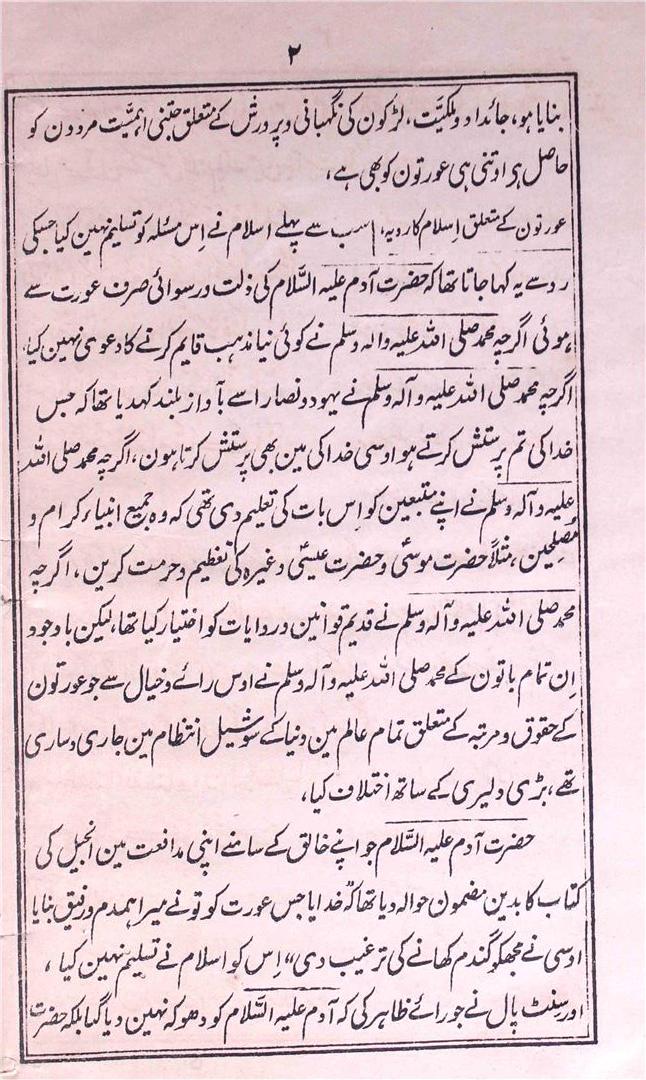 ۲
بنایا ہو، جائداد و ملکیَّت، لڑکون کی نگہبانی و پرورش کے متعلق جتنی اہمیَّت مردون کو
حاصل ہی اوتنی ہی عورتون کو بھی ہے،
عورتون کے متعلق اِسلام کا رویہ، اسب سے پہلے اسلام نے اِس مسئلہ کو تسلیم نہین کیا جسکی
رو سے یہ کہا جاتا تھا کہ حضرت آدم علیہ السَّلام کی ذلت و رسوائی صرف عورت سے
ہوئی اگرچہ محمد صلی اللہ علیہ و الہ وسلم نے کوئی نیا مذہب قایم کرنے کا دعوی نہین کیا،
اگرچہ محمد صلی اللہ علیہ و آلہ وسلم نے یہود و نصارا سے بآواز بلند کہدیا تھا کہ جس
خدا کی تم پرستش کرتے ہو اوسی خدا کی مین بھی پرستش کرتا ہون، اگرچہ محمد صلی اللہ
علیہ و آلہ وسلم نے اپنے متبعین کو اِس بات کی تعلیم دی تھی کہ وہ جمیع انبیاء کرام و
مُصلحین، مثلاً حضرت موسیٰ و حضرت عیسیٰ وغیرہ کی تعظیم و حرمت کرین، اگرچہ
محمد صلی اللہ علیہ و آلہ وسلم نے قدیم قوانین و روایات کو اختیار کیا تھا، لیکن باوجود
اِن تمام باتون کے محمد صلی اللہ علیہ و آلہ وسلم نے اوس رائے و خیال سے جو عورتون
کے حقوق و مرتبہ کے متعلق تمام عالم مین دنیا کے سوشیل اِنتظام مین جاری و ساری
تھے، بڑی دلیری کے ساتھ اختلاف کیا،
حضرت آدم علیہ السَّلام جو اپنے خالق کے سامنے اپنی مدافعت مین انجیل کی
کتاب کا بدین مضمون حوالہ دیا تھا کہ "خدایا جس عورت کو تو نے میرا ہمدم و رفیق بنایا
اوسی نے مجھکو گندم کھانے کی ترغیب دی" اِس کو اسلام نے تسلیم نہین کیا،
اور سِنٹ پال نے جو رائے ظاہر کی کہ آدم علیہ السَّلام کو دھوکہ نہین دیا گیا بلکہ حضرت